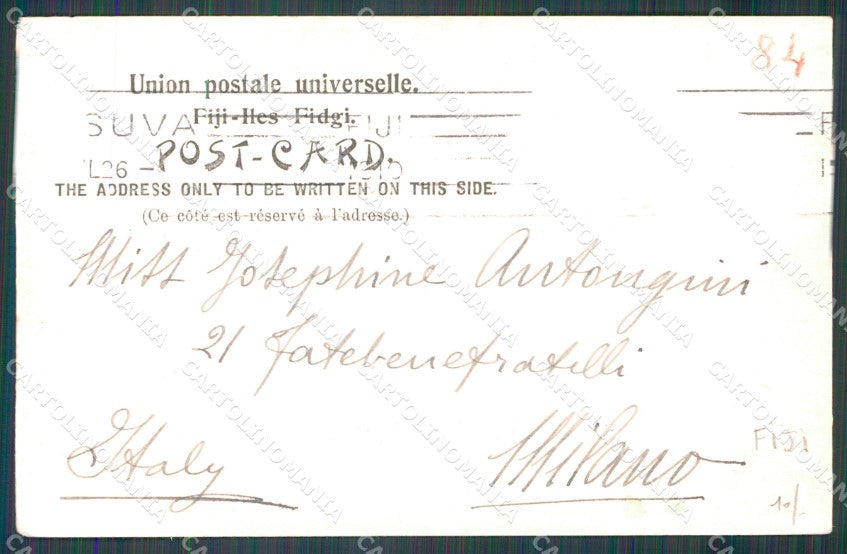 84
Union postale universelle.
Fiji-Iles Fidgi.
SUVA FIJI
POST-CARD.
L26 - 1910
THE ADDRESS ONLY TO BE WRITTEN ON THIS SIDE.
(Ce côté est réservé à l'adresse.)
Miss Josephine Antongini
21 Fatebenefratelli
Milano
Italy
FIJI
10/-
CARTOLINOMANIA